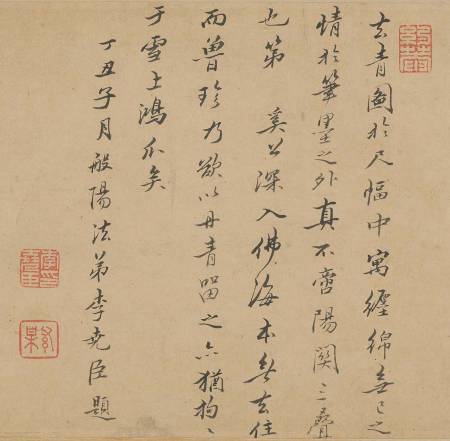 去青圖於尺幅中寓纏綿無已之
情於筆墨之外真不啻陽関三疊
也第 奚公深入佛海本無去住
而魯珍乃欲以丹青留之亦猶拘〻
于雪上鴻爪矣
丁丑子月般陽法弟李堯臣題